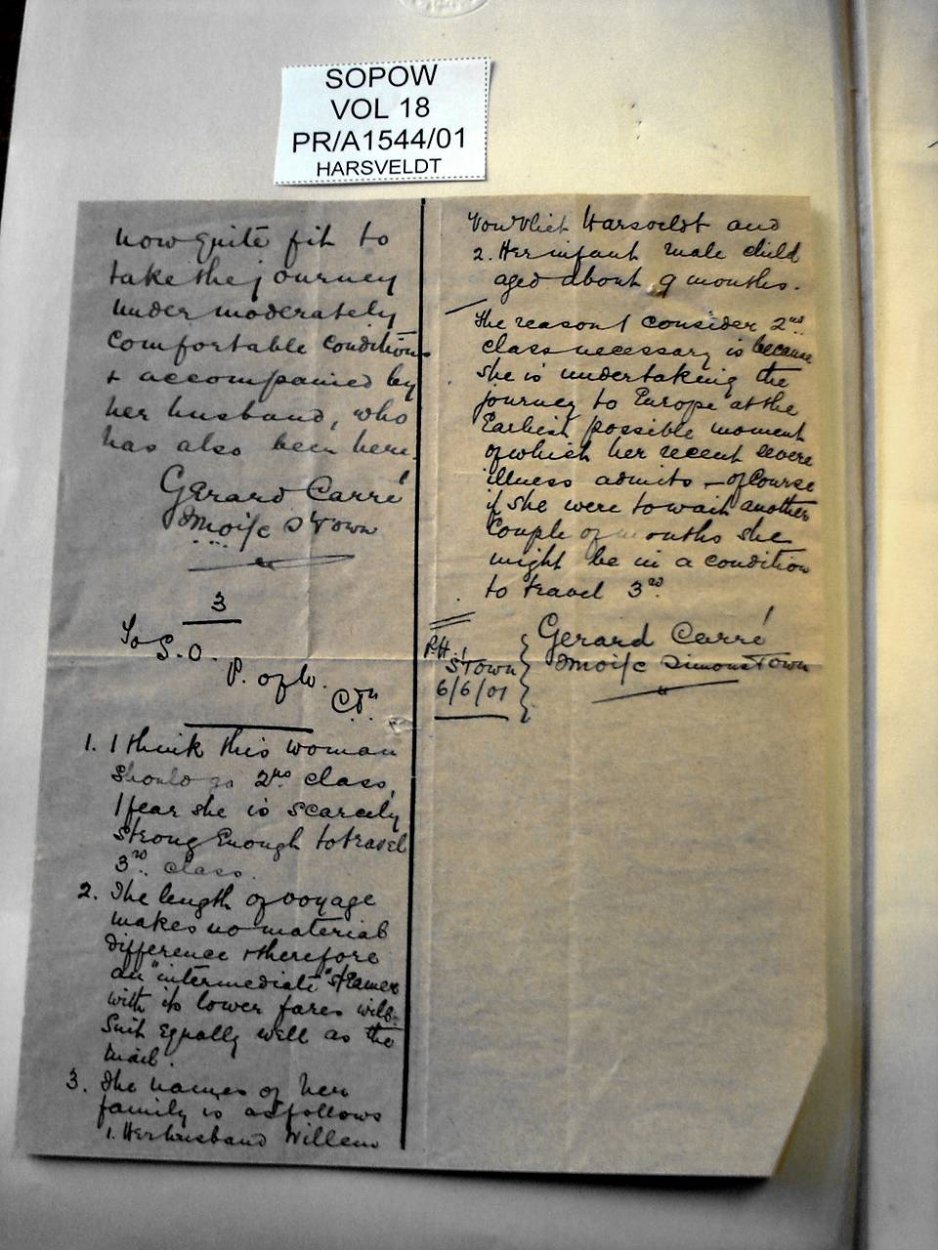 SOPOW
VOL 18
PR/A1544/01
HARSVELDT
now quite fit to
take the journey
under moderately
comfortable conditions
& accompanied by
her husband, who
has also been here.
Gerard Carré
S'Town
3
To S.O.
P. of W.
C.Tn.
1. I think this woman
should go 2nd class,
I fear she is scarcely
strong enough to travel
3rd class.
2. The length of voyage
makes no material
difference & therefore
an "intermediate" steamer
with its lower fares will
suit equally well as the
mail.
3. The names of her
family is as follows
1. Her husband Willem
Van Vliet Harsveldt and
2. Her infant male child
aged about 9 months.
The reason I consider 2nd
class necessary is because
she is undertaking the
journey to Europe at the
Earliest possible moment
of which her recent severe
illness admits – of course
if she were to wait another
couple of months she
might be in a condition
to travel 3rd.
P.H.
S'Town
6/6/01
Gerard Carré
Simons Town